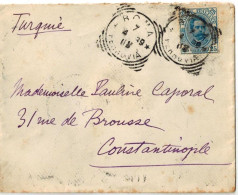 Turquie
ROMA
Mademoiselle Pauline Caporal
31 rue de Brousse
Constantinople